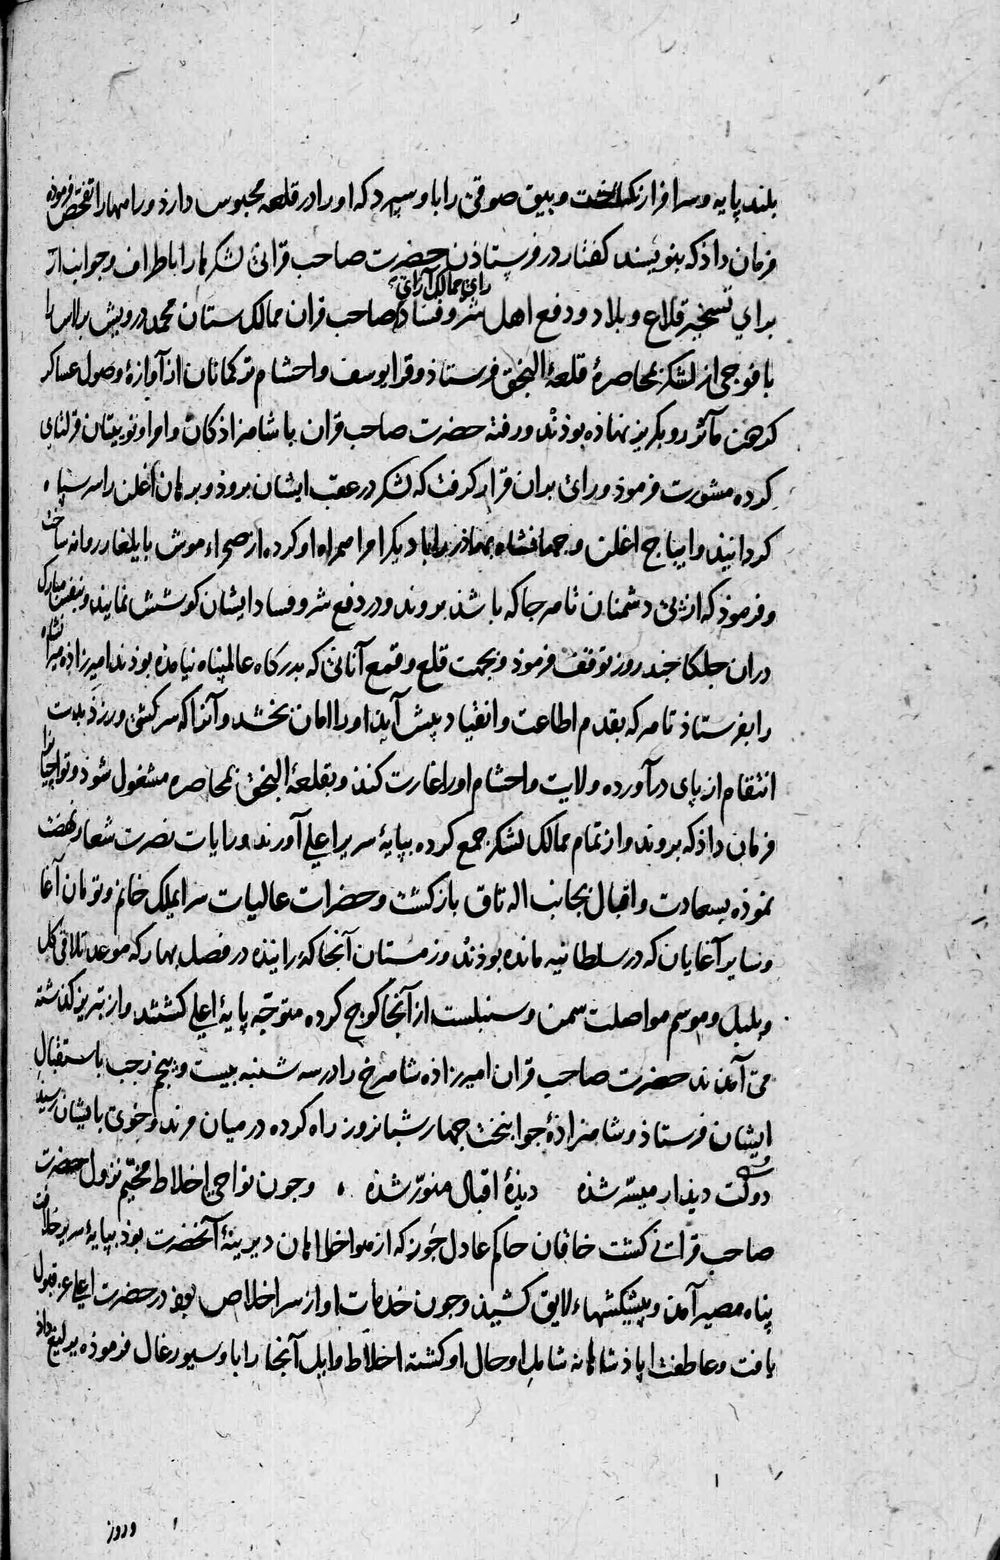 بلند پایه و سرافراز نکداخت و بیق صوفی را باو سپرد که او را در قلعه محبوس دارذ و راهها را تفحص فرموذه
فرمان داذ که بنویسند کفتار در فرستاذن حضرت صاحب قرانی لشکرها را باطراف و جوانب از
رای ممالک آرای
برای تسخیر قلاع و بلاد و دفع اهل شر و فساد صاحب قران ممالک ستان محمد درویش برلاس را
با فوجی از لشکر بمحاصرهٔ قلعهٔ النجق فرستاذ و قرا یوسف و احشام ترکمانان از آوازهٔ وصول عساکر
کردون مآثر رو بکریز نهاذه بوذند و رفته حضرت صاحب قران با شاهزاذکان و امرا و نویینان قرلتای
کرده مشورت فرموذ و رای بران قرار کرفت که لشکر در عقب ایشان بروذ و برهان اغلن را سر سپاه
کردانیذ و ایباج اغلن و جهانشاه بهاذر را با دیکر امرا همراه او کرده از صحراء موش بایلغار روانه ساخت
و فرموذ که از پی دشمنان تا هر جا که باشذ بروند و در دفع شر و فساد ایشان کوشش نمایند و بنفس مبارک
دران جلکا جند روز توقف فرموذ و بجهت قلع و قمع آنانی که بدرکاه عالمپناه نیامذه بوذند امیرزاده میرانشاه
را بفرستاذ تا هر که بقدم اطاعت و انقیاد پیش آید او را امان بخشد و آنرا که سرکشی ورزذ بدست
انتقام از پای درآورده ولایت و احشام او را غارت کند و بقلعهٔ النجق بمحاصره مشغول شود و تواجیانرا
فرمان داذ که بروند و از تمام ممالک لشکر جمع کرده بپایهٔ سریر اعلی آورند و رایات نصرت شعار نهضت
نموذه بسعادت و اقبال بجانب اله تاق بازکشت و حضرات عالیات سرای ملک خانم و تومان آغا
و سایر آغایان که در سلطانیه مانده بوذند و زمستان آنجا کذرانیذه در فصل بهار که موعد تلاقی کل
و بلبل و موسم مواصلت سمن و سنبلست از آنجا کوچ کرده متوجّه پایهٔ اعلی کشتند و از تبریز کذشته
می آمدند حضرت صاحب قران امیرزاذه شاهرخ را در سه شنبه بیست و پنجم رجب باستقبال
ایشان فرستاذ و شاهزاذهٔ جوانبخت جهار شبانروز راه کرده در میان مرند و خوی بایشان رسید
دولت دیدار میسّر شذه دیذهٔ اقبال منوّر شذه ، و جون نواحی اخلاط مخیّم نزول حضرت
صاحب قرانی کشت خاقان حاکم عادل جوز که از هواخواهان دیرینهٔ آنحضرت بوذ بپایهٔ سریر خلافت
پناه مصیر آمد و پیشکشهاء لایق کشیذ و جون خدمات او از سر اخلاص بوذ در حضرت اعلی عز قبول
یافت و عاطفت پاذشاهانه شامل احوال او کشته اخلاط و ایل آنجا را باو سیورغال فرموذه یرلیغ داذ
و روز